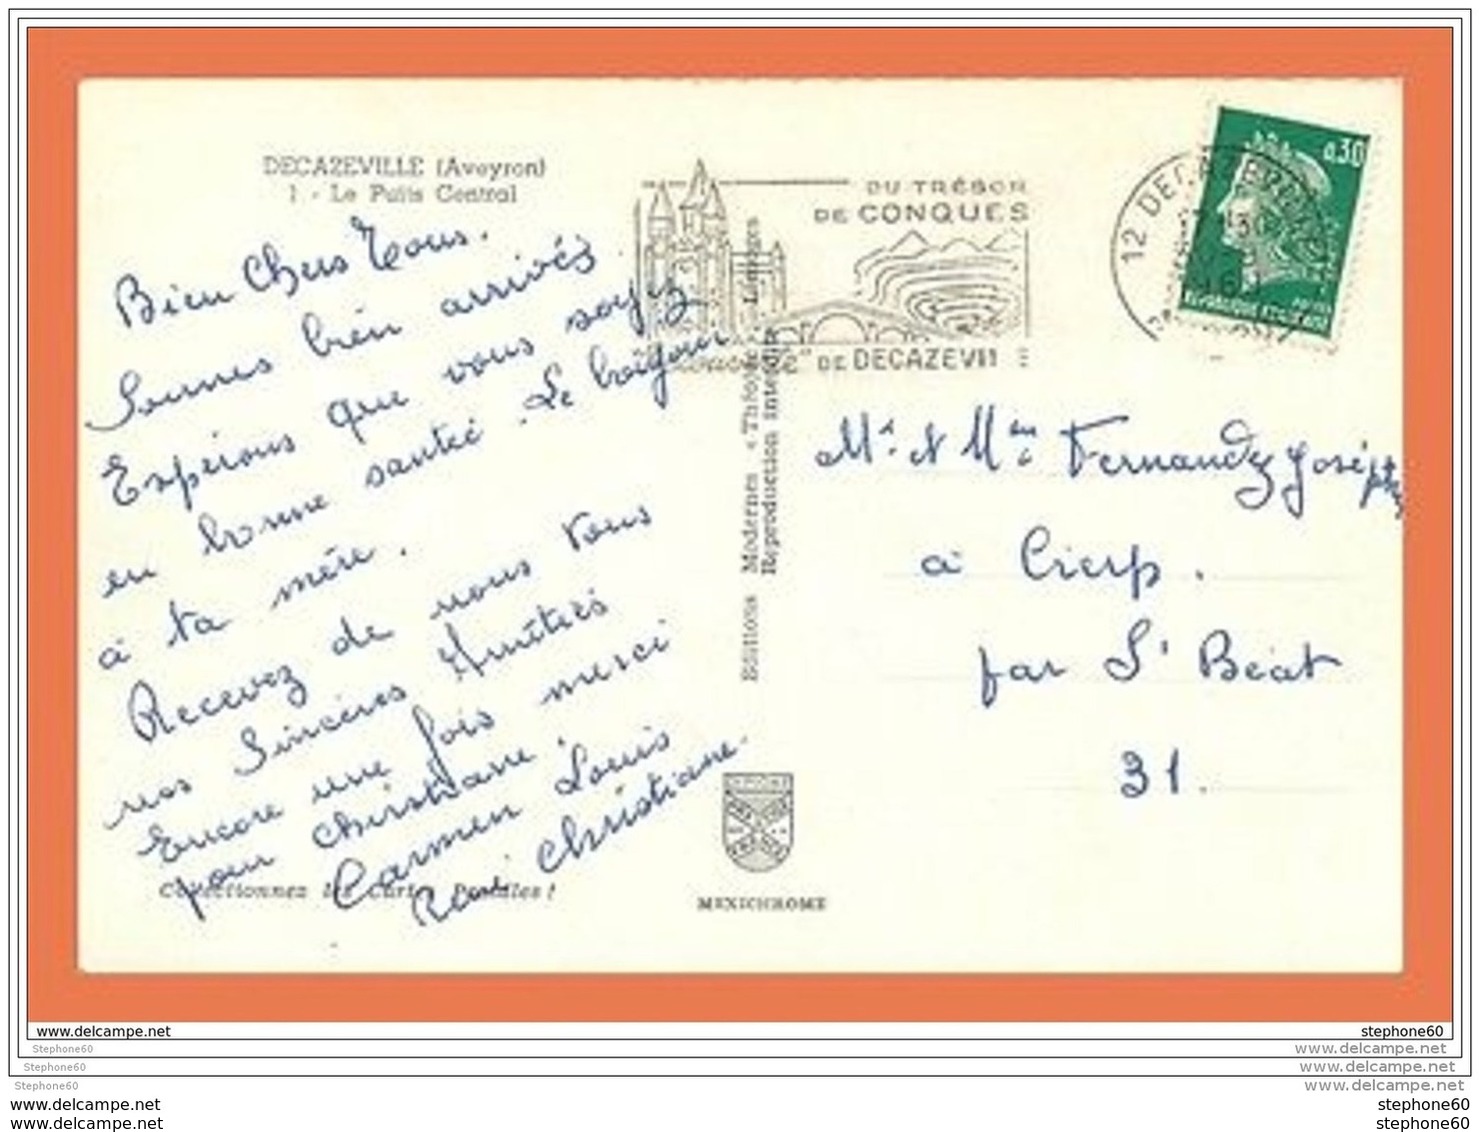 DECAZEVILLE (Aveyron)
1 - Le Puits Central
Bien Chers Tous.
Sommes bien arrivés.
Espérons que vous soyez
en bonne santé. Le bonjour
à ta mère.
Recevez de nous tous
nos Sincères Amitiés
Encore une fois merci
pour Christiane.
Carmen Louis
René Christiane.
Collectionnez les Cartes Postales !
Editions Modernes « Théojac » Limoges
Reproduction interdite
MEXICHROME
DU TRÉSOR
DE CONQUES
DE DECAZEVILLE
12 DECAZEVILLE
0,30
REPUBLIQUE FRANCAISE
Mr. et Mme Fernandez Joseph
à Cierp.
par St Béat
31.
www.delcampe.net
stephone60
Stephone60
www.delcampe.net
Stephone60
www.delcampe.net
Stephone60
www.delcampe.net
www.delcampe.net
stephone60
www.delcampe.net
stephone60